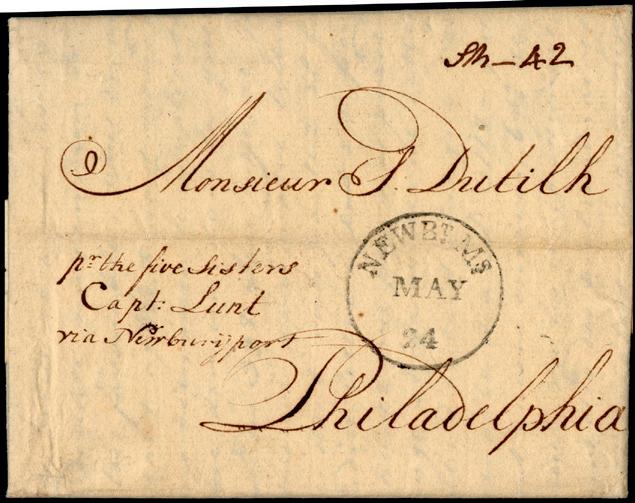 Sh-42
Monsieur S. Dutilh
pr the five Sisters
Capt: Lunt
via Newburyport
NEWBT. MS
MAY
24
Philadelphia